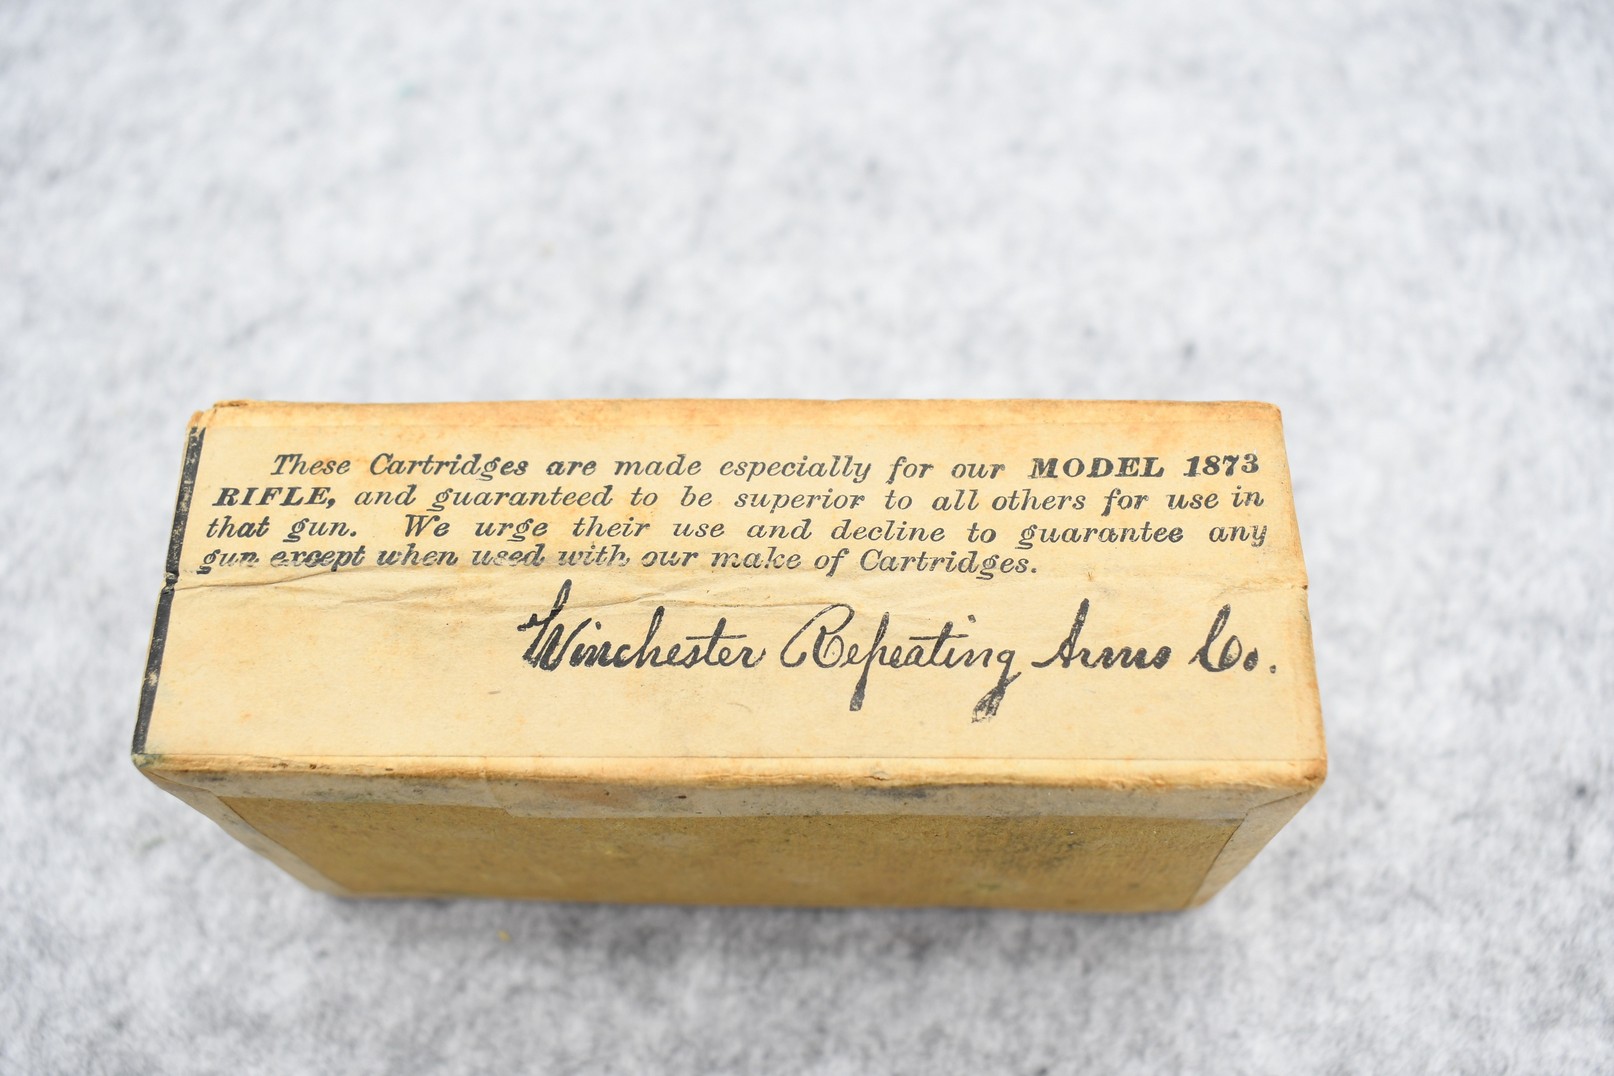 These Cartridges are made especially for our MODEL 1873
RIFLE, and guaranteed to be superior to all others for use in
that gun. We urge their use and decline to guarantee any
gun except when used with our make of Cartridges.
Winchester Repeating Arms Co.